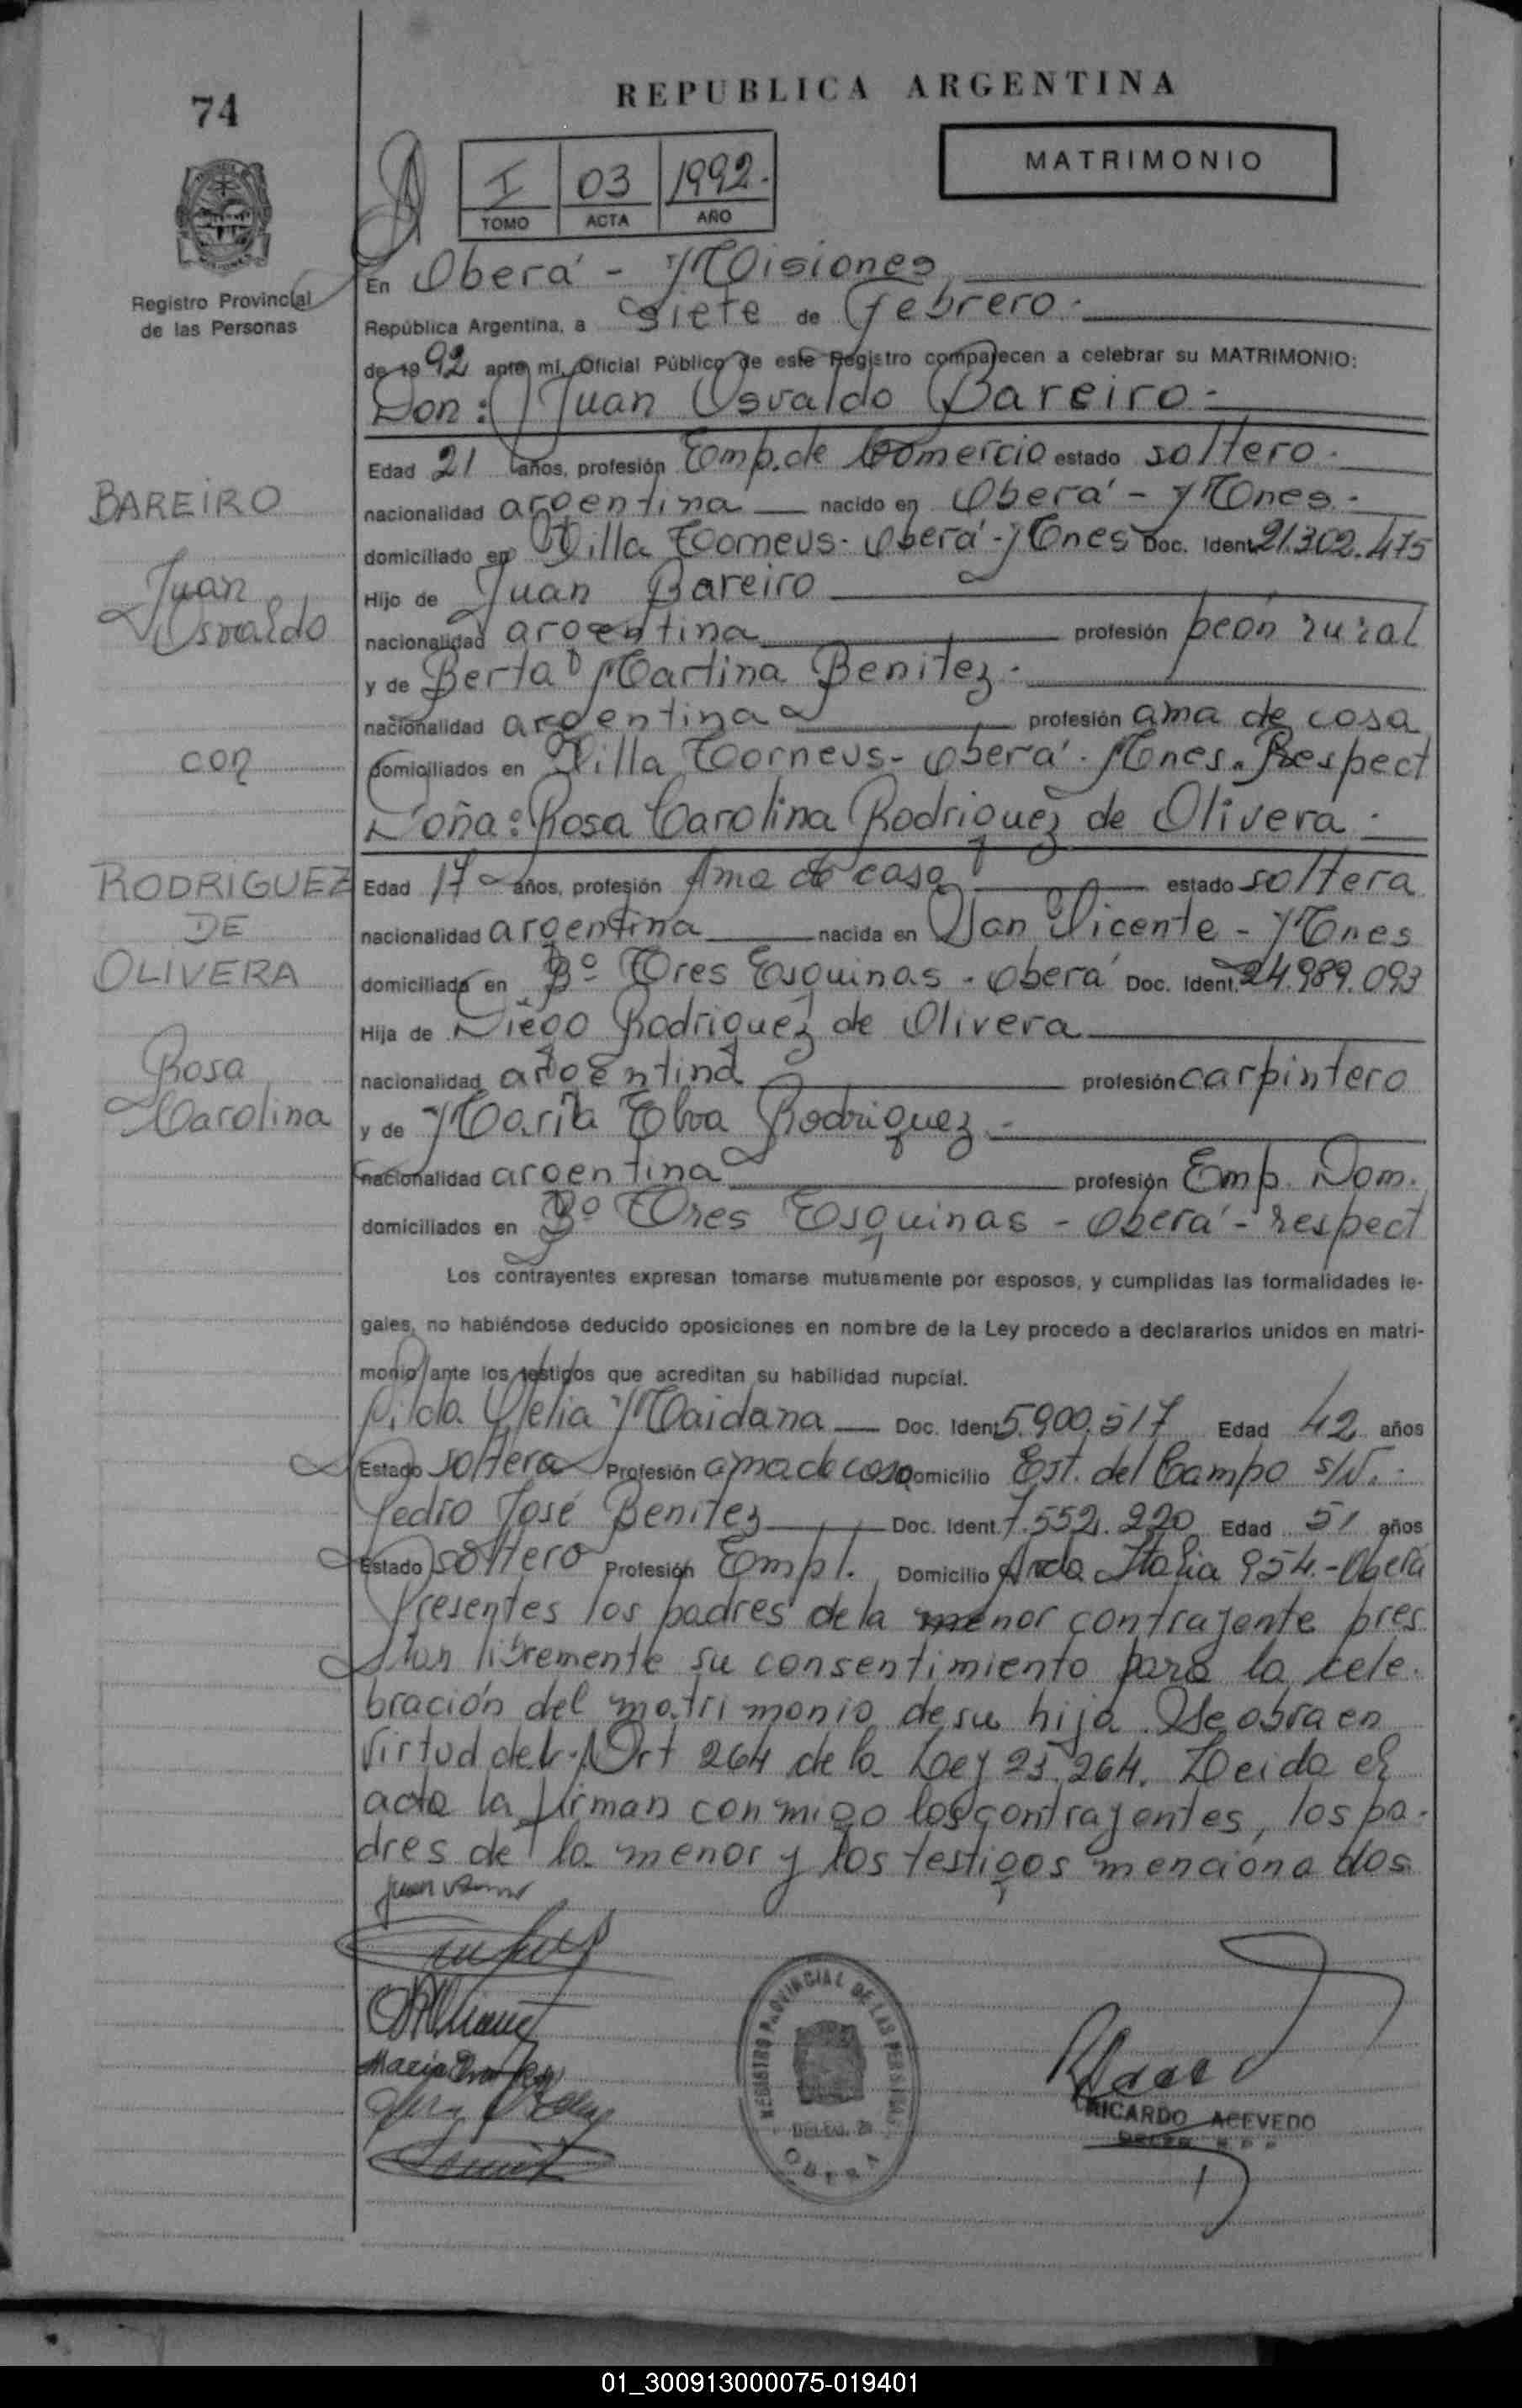 74
REPUBLICA ARGENTINA
MATRIMONIO
I 03 1992.
TOMO ACTA AÑO
Registro Provincial
de las Personas
En Oberá - Misiones
República Argentina, a siete de Febrero.
de 1992 ante mí, Oficial Público de este Registro comparecen a celebrar su MATRIMONIO:
Don: Juan Osvaldo Bareiro.-
Edad 21 años, profesión Emp. de Comercio estado soltero.
nacionalidad argentina nacido en Oberá - Mnes.
domiciliado en Villa Torneus - Oberá - Mnes Doc. Ident. 21.302.475
Hijo de Juan Bareiro
nacionalidad argentina profesión peón rural
y de Berta Martina Benitez.
nacionalidad argentina profesión ama de casa
domiciliados en Villa Torneus - Oberá - Mnes. Respect
Doña: Rosa Carolina Rodriguez de Olivera.
Edad 17 años, profesión Ama de casa estado soltera
nacionalidad argentina nacida en San Vicente - Mnes
domiciliada en Bº Tres Esquinas - Oberá Doc. Ident. 24.989.093
Hija de Diego Rodriguez de Olivera
nacionalidad argentina profesión carpintero
y de María Elva Rodriguez.-
nacionalidad argentina profesión Emp. Dom.
domiciliados en Bº Tres Esquinas - Oberá - respect
BAREIRO
Juan
Osvaldo
con
RODRIGUEZ
DE
OLIVERA
Rosa
Carolina
Los contrayentes expresan tomarse mutuamente por esposos, y cumplidas las formalidades le-
gales, no habiéndose deducido oposiciones en nombre de la Ley procedo a declararlos unidos en matri-
monio ante los testigos que acreditan su habilidad nupcial.
Maidana Doc. Ident. 5.900.517 Edad 42 años
Estado soltera Profesión ama de casa Domicilio Est. del Campo s/N.
Pedro José Benitez Doc. Ident. 7.552.220 Edad 51 años
Estado soltero Profesión Empl. Domicilio Avda Italia 954.- Oberá
Presentes los padres de la menor contrayente pres
tan libremente su consentimiento para la cele-
bración del matrimonio de su hija. Se obra en
virtud del Art 264 de la Ley 23.264. Leida el
acta la firman conmigo los contrayentes, los pa-
dres de la menor y los testigos mencionados
REGISTRO PROVINCIAL DE LAS PERSONAS
OBERA
RICARDO ACEVEDO
01_300913000075-019401